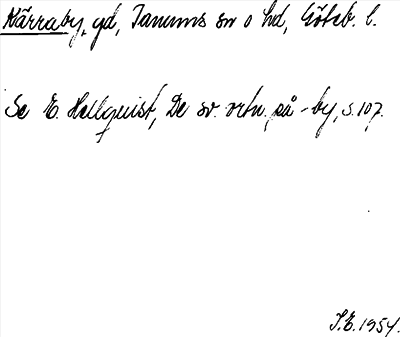 Kärraby, gd, Tanums sn o hd, Göteb. l.
Se E. Hellquist, De sv. ortn. på -by, s. 107.
I.E. 1954.